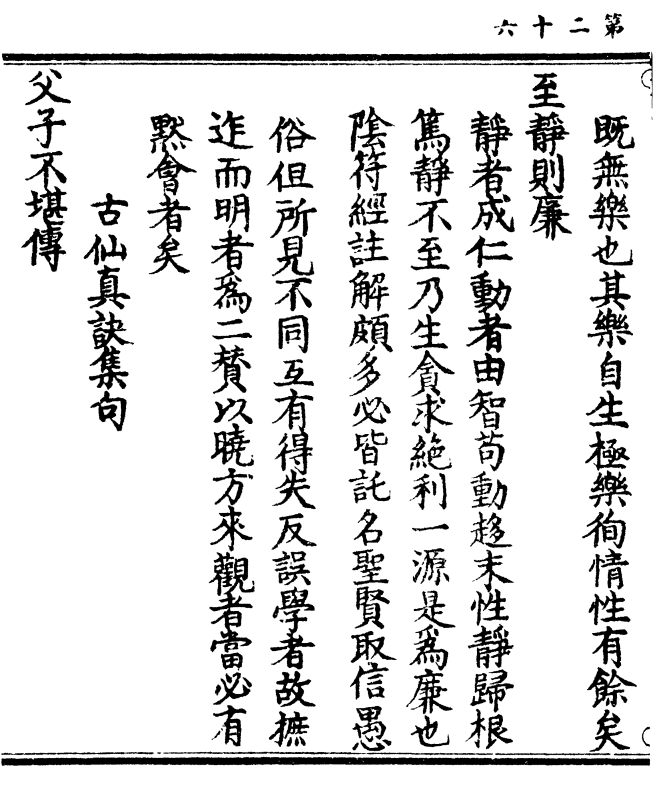 第二十六
既無樂也其樂自生極樂徇情性有餘矣
至靜則廉
靜者成仁動者由智苟動趍末性靜歸根
篤靜不至乃生貪求絶利一源是爲廉也
陰符經註解頗多必皆託名聖賢取信愚
俗但所見不同互有得失反誤學者故摭
迮而明者爲二賛以曉方來觀者當必有
默會者矣
古仙真訣集句
父子不堪傳